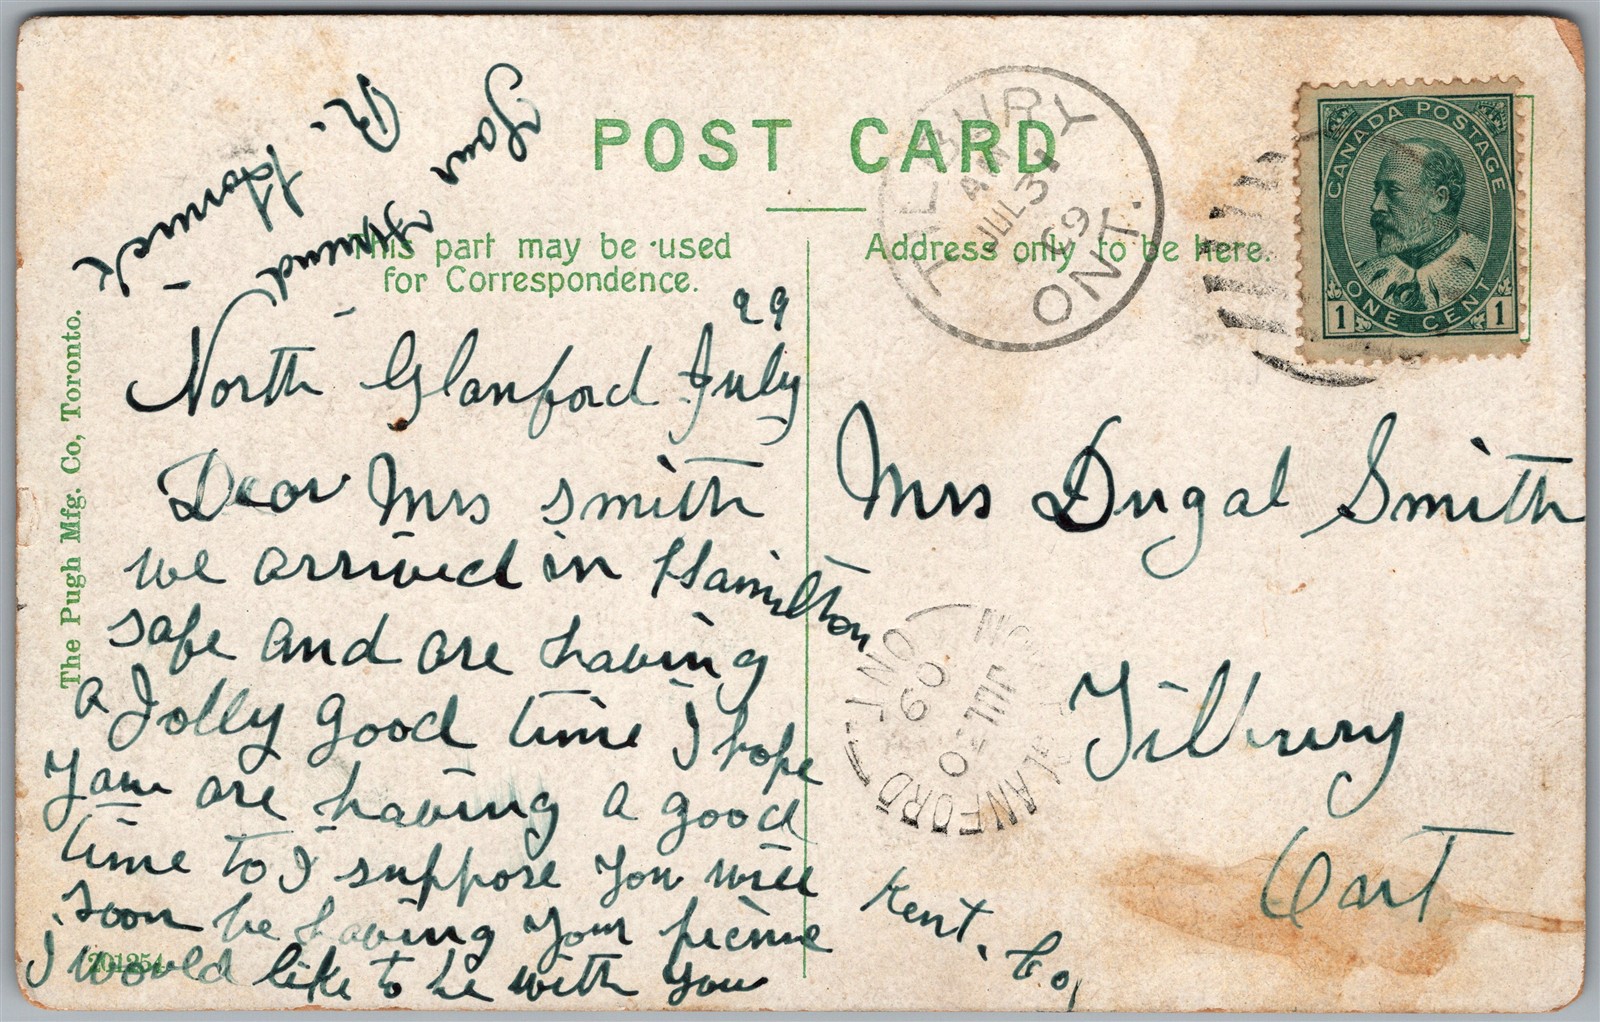 POST CARD
This part may be used
for Correspondence.
Address only to be here.
TILBURY
AM
JUL 31
09
ONT.
CANADA POSTAGE
ONE CENT
1 1
The Pugh Mfg. Co, Toronto.
29
North Glanford July
Dear Mrs smith
we arrived in Hamilton
safe and are having
a Jolly good time I hope
you are having a good
time to I suppose you will
soon be having your picnic
I would like to be with you
Your Friend
R.
201254
Mrs Dugal Smith
Tilbury
Ont
Kent. Co,
GLANFORD
JUL
09
ONT